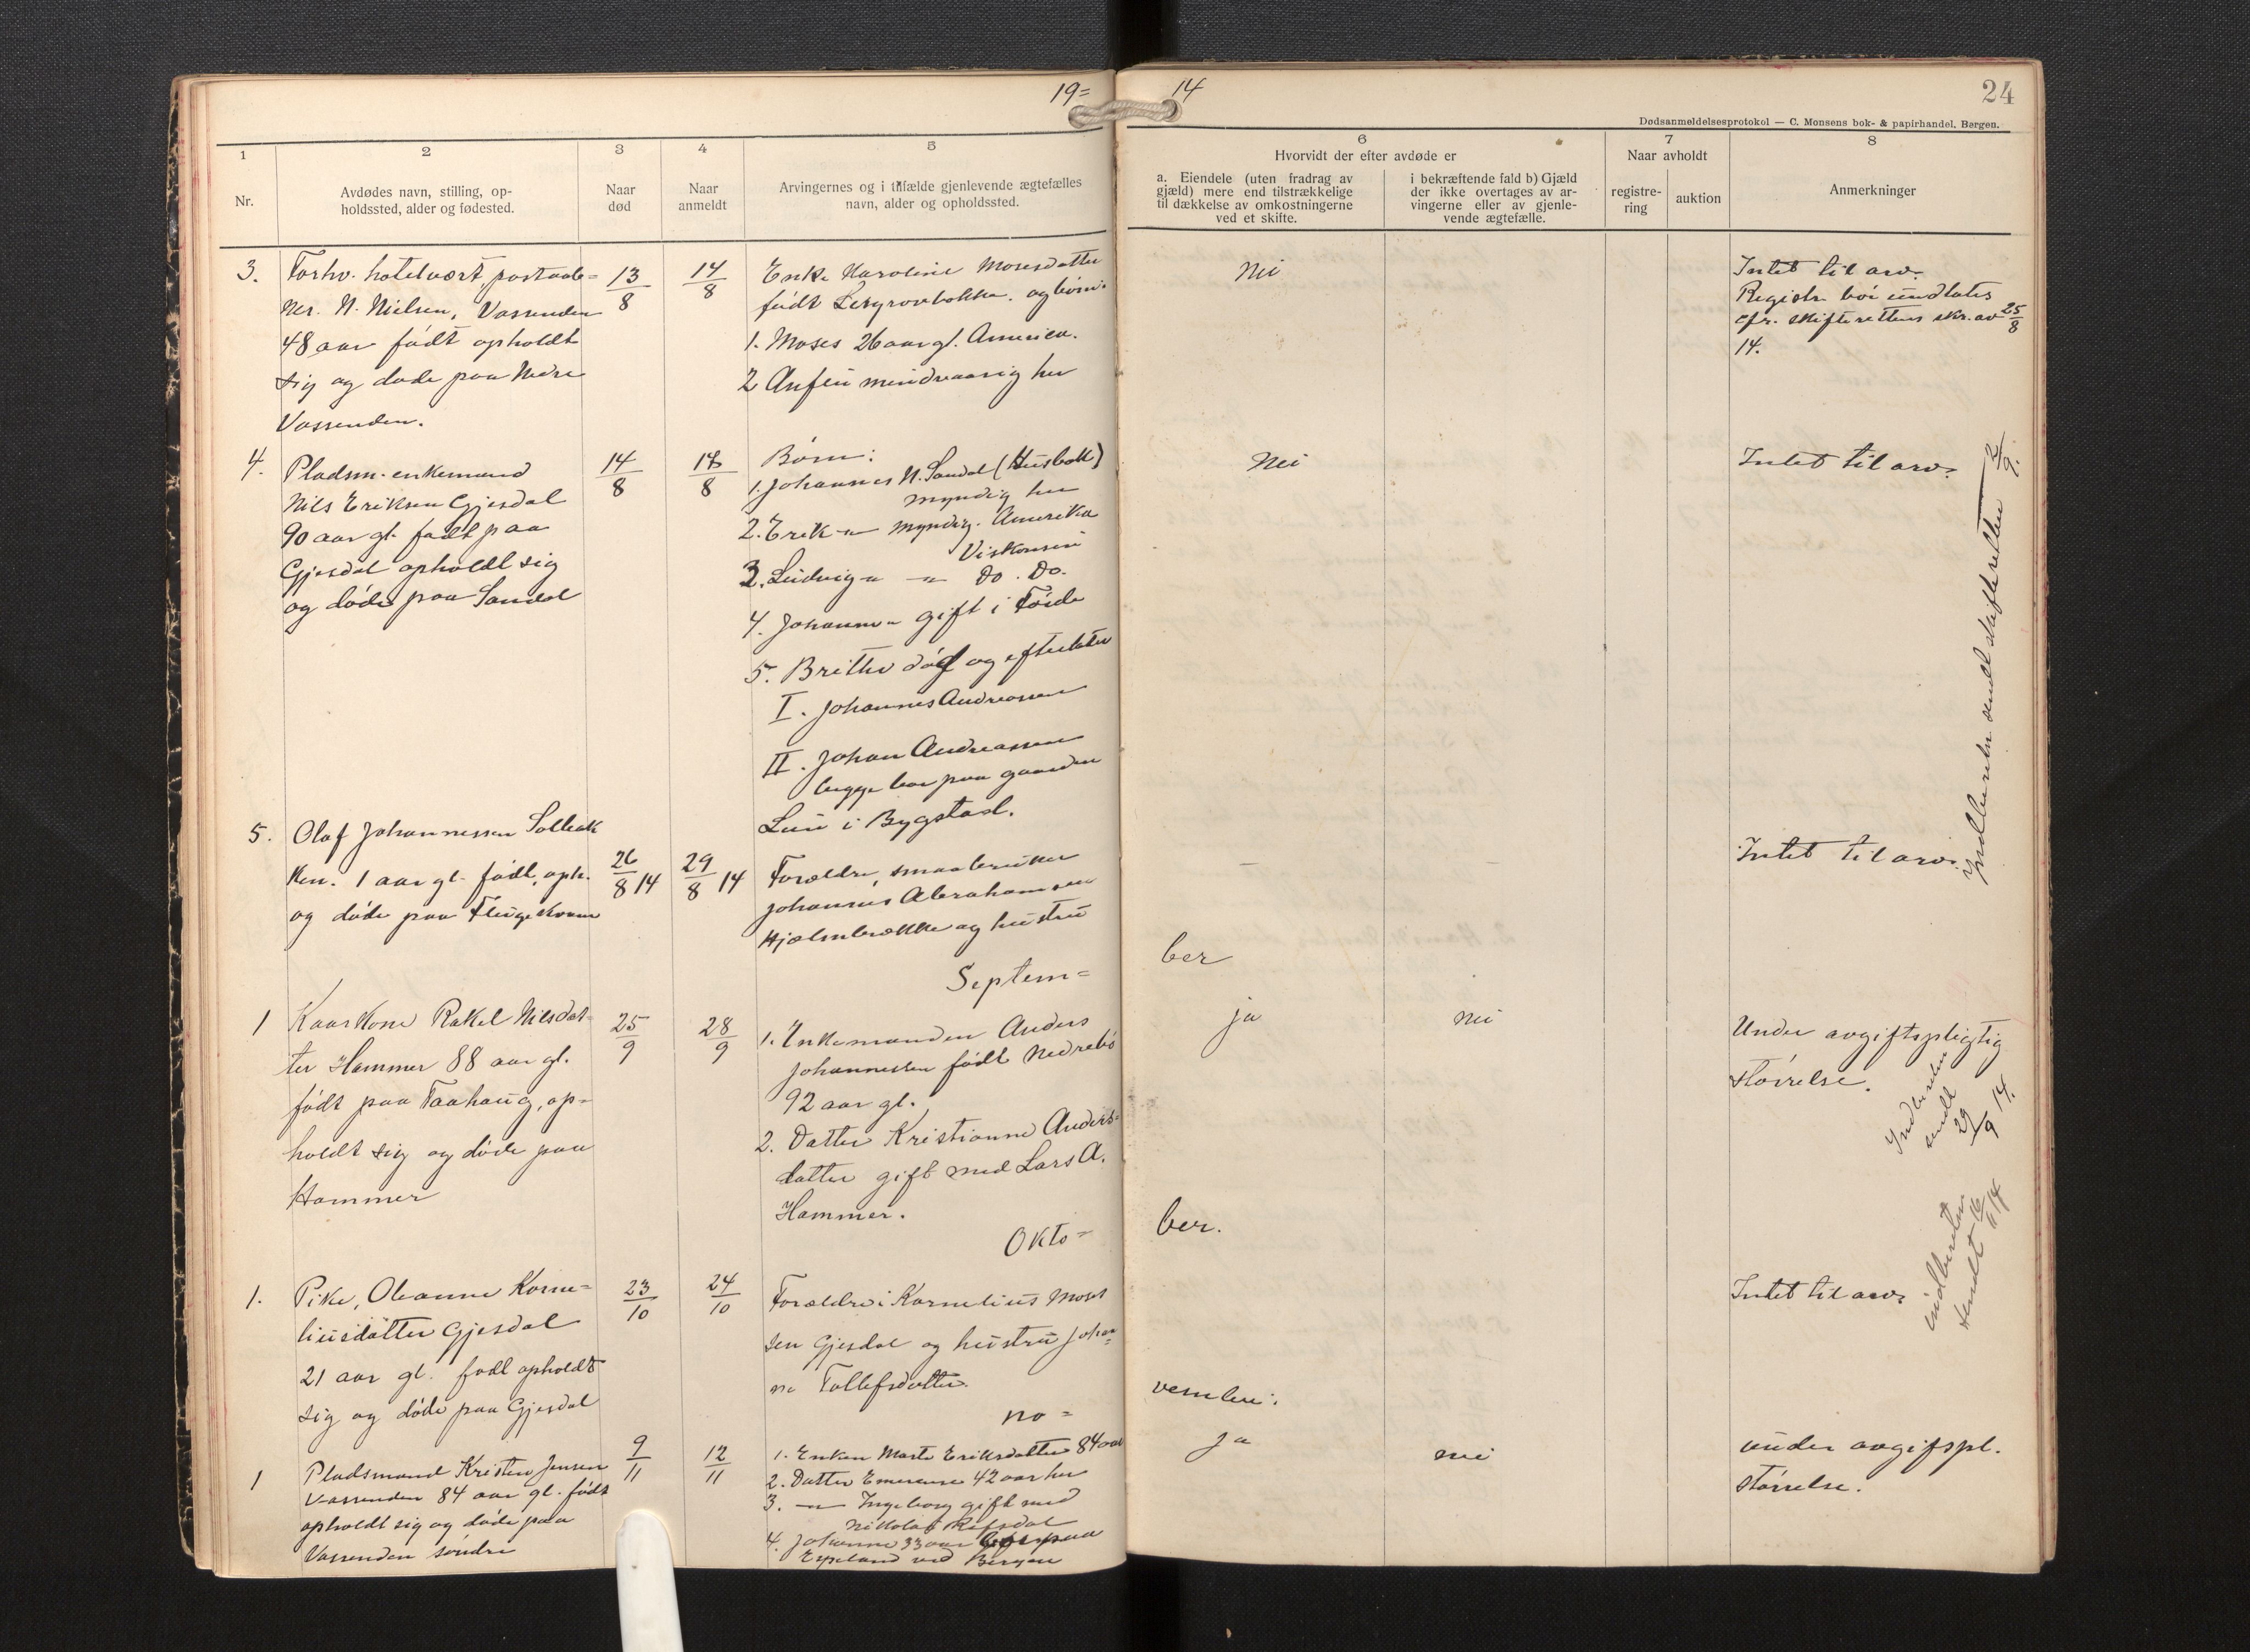 19=
1
2
3
4
5
Nr.
Avdødes navn, stilling, op-
holdssted, alder og fødested.
Naar
død
Naar
anmeldt
Arvingernes og i tilfælde gjenlevende ægtefælles
navn, alder og opholdssted.
3.
Forhv. hotelvært, postaab=
ner. N. Nielsen, Vassenden
48 aar født opholdt
sig og døde paa Nedre
Vassenden.
13/8
14/8
Enke Karoline Mosesdatter
født . og børn.
1. Moses 26 aar gl. America.
2 Anfin mindreaarig her
4.
Pladsm. enkemand
Nils Eriksen Gjesdal
90 aar gl. født paa
Gjesdal opholdt sig
og døde paa Sandal
14/8
18/8
Børn:
1. Johannes N. Sandal (Husbak)
myndig her
2. Erik -"- myndig. Amerika
Viskonsin
3. Ludvig -"- -"- Do. Do.
4. Johanne -"- gift i Førde
5. Brithe død og efterlater
I. Johannes Andreassen
II. Johan Andreassen
begge bor paa gaarden
Lun i Bygstad.
5.
Olaf Johannessen Solbak
ken. 1 aar gl. født, oph.
og døde paa Flugekvam
26/8 14
29/8 14
Forældre, smaabruker
Johannes Abrahamsen
Hjelmbrekke og hustru
Septem=
1
Kaarkone Rakel Nilsdat=
ter Hammer 88 aar gl.
født paa Taahaug, op=
holdt sig og døde paa
Hammer
25/9
28/9
1. Enkemanden Anders
Johannessen født Nedrebø
92 aar gl.
2. Datter Kristianne Anders=
datter gift med Lars A.
Hammer.
Okto=
1.
Pike, Oleanne Korne=
liusdatter Gjesdal
21 aar gl. født opholdt
sig og døde paa Gjesdal
23/10
24/10
Forældre: Kornelius Moses
sen Gjesdal og hustru Johan=
ne Tollefsdatter.
No=
1
Pladsmand Kristen Jensen
Vassenden 84 aar gl. født
opholdt sig og døde paa
Vassenden søndre
9/11
12/11
1. Enken Marte Eriksdatter 84 aar
2. Datter Emerense 42 aar her
3. -"- Ingeborg gift med
Nikolai Refsdal
4. Johanne 33 aar bor paa
Espeland ved Bergen
14
24
Dødsanmeldelsesprotokol — C. Monsens bok- & papirhandel, Bergen.
6
7
8
Hvorvidt der efter avdøde er
a. Eiendele (uten fradrag av
gjæld) mere end tilstrækkelige
til dækkelse av omkostningerne
ved et skifte.
i bekræftende fald b) Gjæld
der ikke overtages av ar-
vingerne eller av gjenle-
vende ægtefælle.
Naar avholdt
registre-
ring
auktion
Anmerkninger
Nei
Intet til arv.
Registr. bør undlates
cfr. skifterettens skr. av 25/8
14.
Nei
Intet til arv.
Indberetn. sendt skifteretten 2/9.
–
–
Intet til arv.
ber
ja
nei
Under avgiftspligtig
størrelse.
Indberetn
sendt
29/9 14.
ber.
Intet til arv.
indberetn
sendt 16/11 14
vember.
ja
nei
under avgifspl.
størrelse.